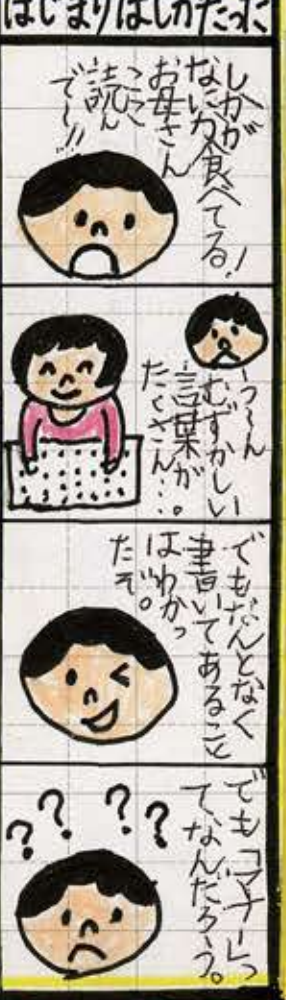 はじまりはしかだった
しかが
なにか食べてる!
お母さん
ここ
読ん
で〜!!
う〜ん
むずかしい
言葉が
たくさん…。
でもなんとなく
書いてあること
はわかっ
たぞ。
でも「マナー」っ
て、なんだろう。
? ? ? ?